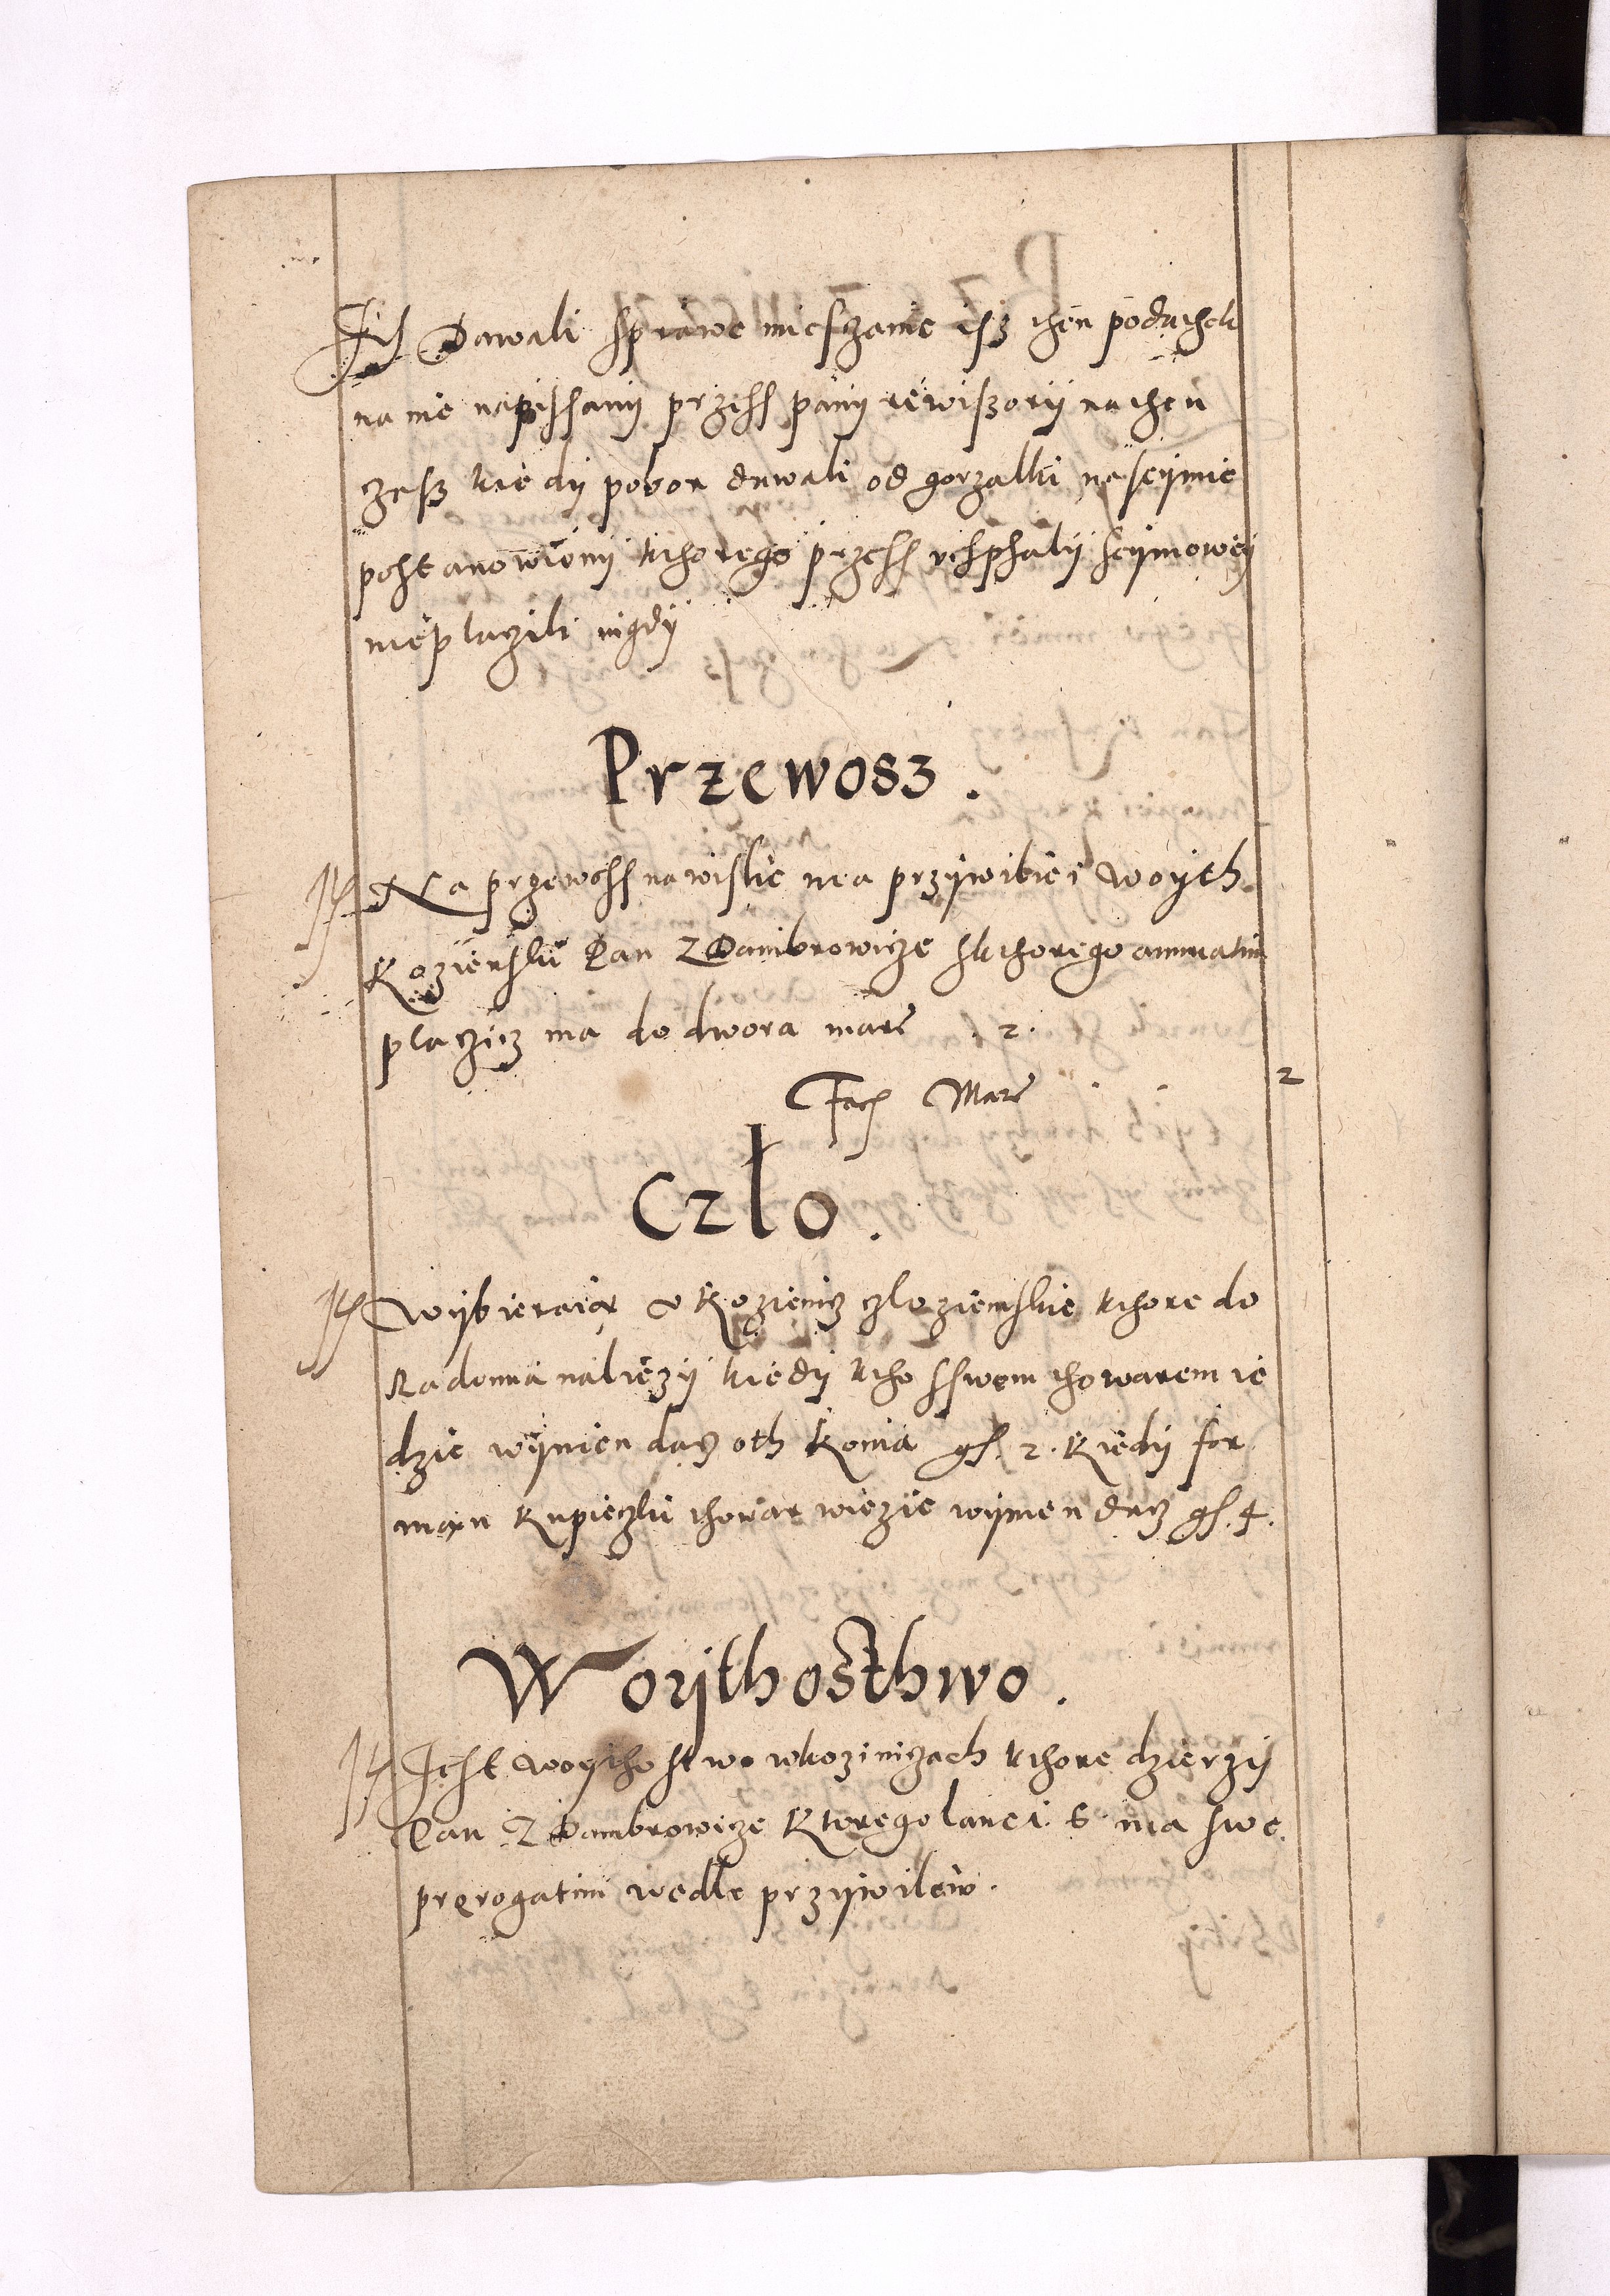 It Dawali sprawe miesczanie isz then podathek
na nie napissany przess pany rewiszory na then
czasz kiedy pobor dawali od gorzalki na seymie
postanowiony kthorego przess vchphaly seymowey
nieplaczili nigdy
Przewosz.
It Na przewoss na wislie ma przywiliei woyth
Kozienski Pan Z Dambrowicze skthorego annuatim
placzicz ma do dwora marc . 2.
Facit Marc 2
Czło.
It Wybieraią v Kozienicz czlo ziemskie kthore do
Radomia naliezy kiedy ktho sswem thowarem ie
dzie wynien dacz oth konia gr. 2. Kiedy for
man kupieczki thowar wiezie wynien dacz gr. 4.
Woythosthwo.
It Jest woythostwo w koziniczach kthore dzierzy
Pan Z Dambrowicze Ktorego lanei 6 ma swe
prerogatiui wedle przywilew.